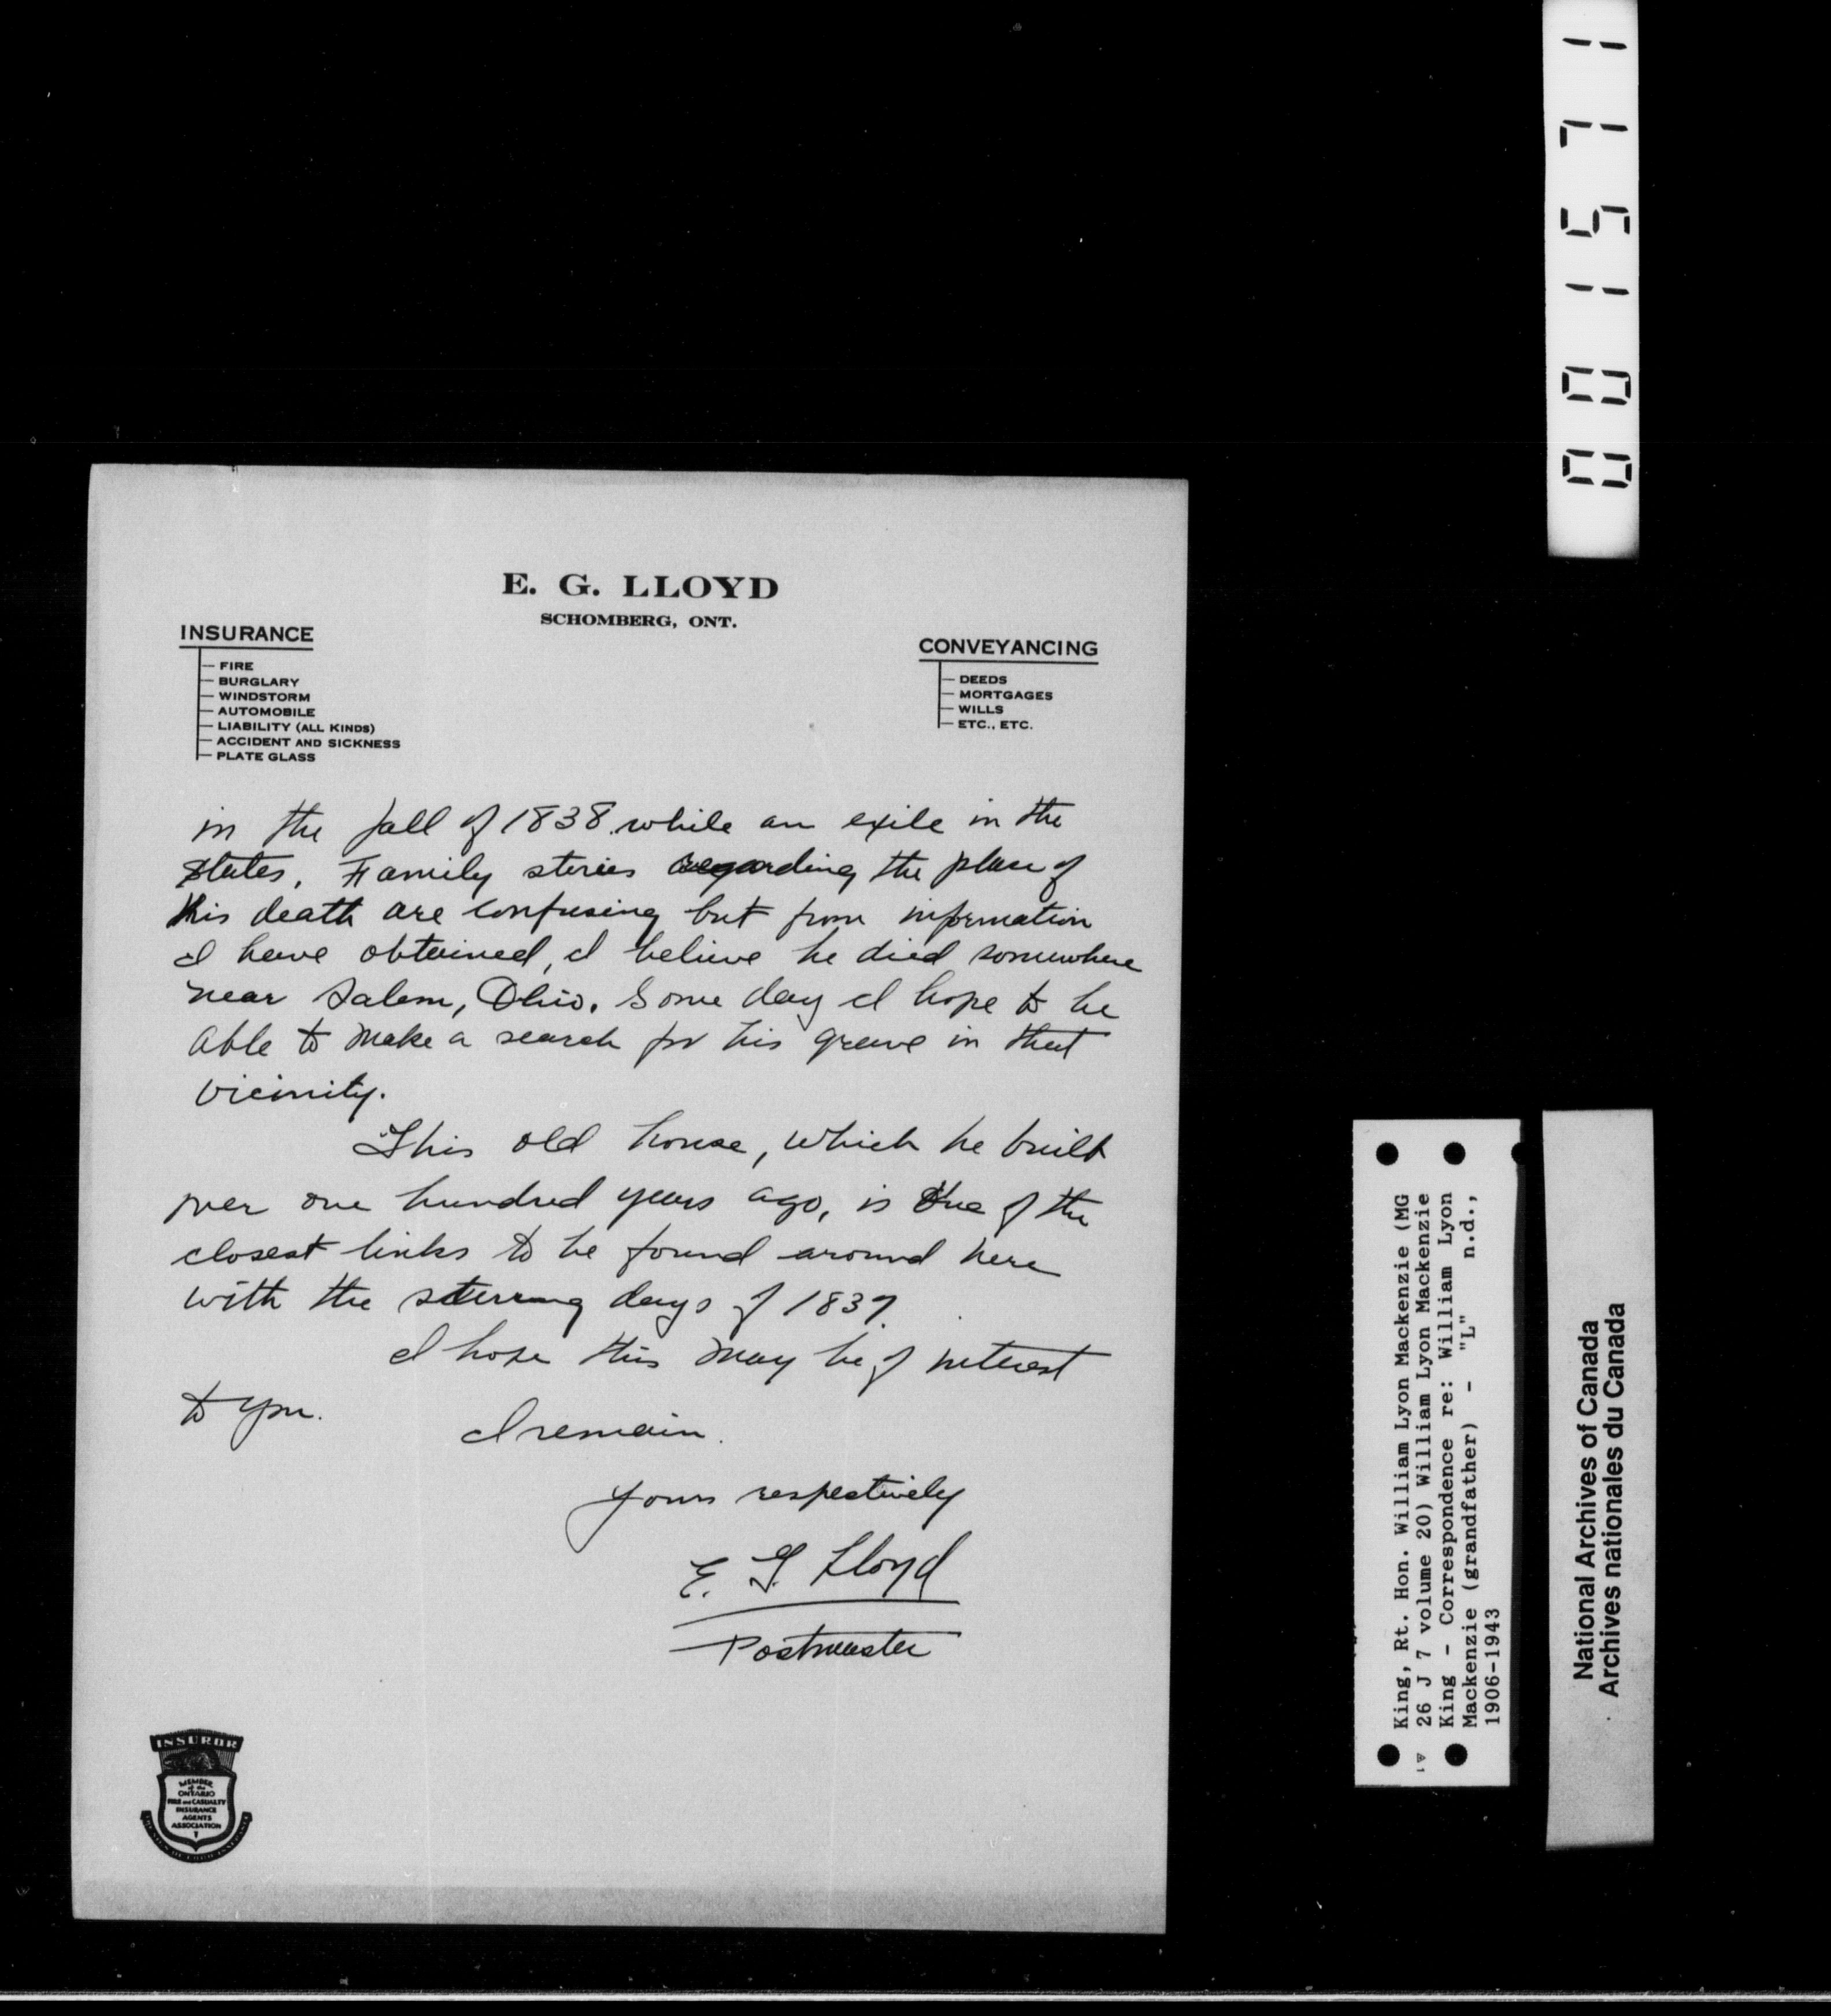 001571
E. G. LLOYD
SCHOMBERG, ONT.
INSURANCE
FIRE
BURGLARY
WINDSTORM
AUTOMOBILE
LIABILITY (ALL KINDS)
ACCIDENT AND SICKNESS
PLATE GLASS
CONVEYANCING
DEEDS
MORTGAGES
WILLS
ETC., ETC.
in the fall of 1838 while an exile in the
States. Family stories regarding the place of
his death are confusing but from information
I have obtained, I believe he died somewhere
near Salem, Ohio. Some day I hope to be
able to make a search for his grave in that
vicinity.
This old house, which he built
over one hundred years ago, is one of the
closest links to be found around here
with the stirring days of 1837.
I hope this may be of interest
to you.
I remain.
Yours respectively
E. G. Lloyd
Postmaster
INSUROR
MEMBER
of the
ONTARIO
FIRE and CASUALTY
INSURANCE
AGENTS
ASSOCIATION
King, Rt. Hon. William Lyon Mackenzie (MG
26 J 7 volume 20) William Lyon Mackenzie
King - Correspondence re: William Lyon
Mackenzie (grandfather) - "L" n.d.,
1906-1943
National Archives of Canada
Archives nationales du Canada